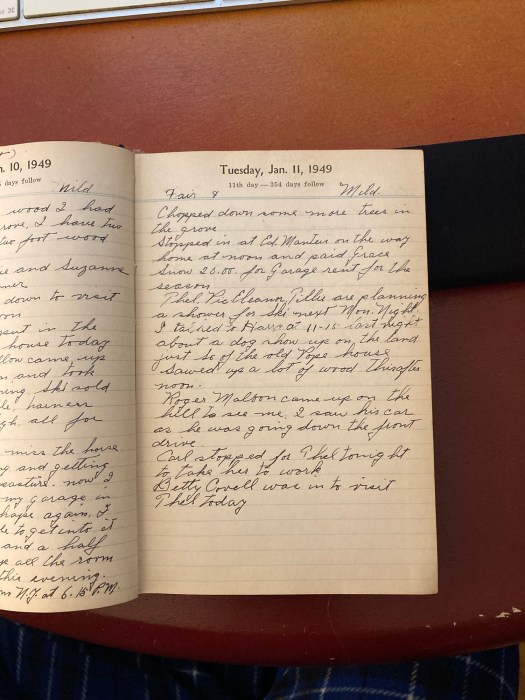 n. 10, 1949
days follow
Mild
wood I had
rove, I have two
two foot wood
ie and Suzanne
ner
down to visit
on
sent in the
house today
llow came, up
n and took
ning Ski sold
harness
gh, all for
miss the horse
g and getting
pasture. now I
my garage in
hape again. I
le to get into it
and a half
all the room
this evening.
m N.J. at 6.15 P.M.
Tuesday, Jan. 11, 1949
11th day — 354 days follow
Fair & Mild.
Chopped down some more trees in
the grove
Stopped in at Ed. Manter on the way
home at noon and paid Grace
Snow 20.00 for Garage rent for the
season
Thel, Vic, Eleanor, Tillie are planning
a shower for Ski next Mon. Night,
I talked to at 11-15 last night
about a dog show up on the land
just so of the old Pope house
Sawed up a lot of wood this after
noon.
Roger Maloon came up on the
hill to see me, I saw his car
as he was going down the front
drive
Carl stopped for Thel tonight
to take her to work
Betty Covell was in to visit
Thel today